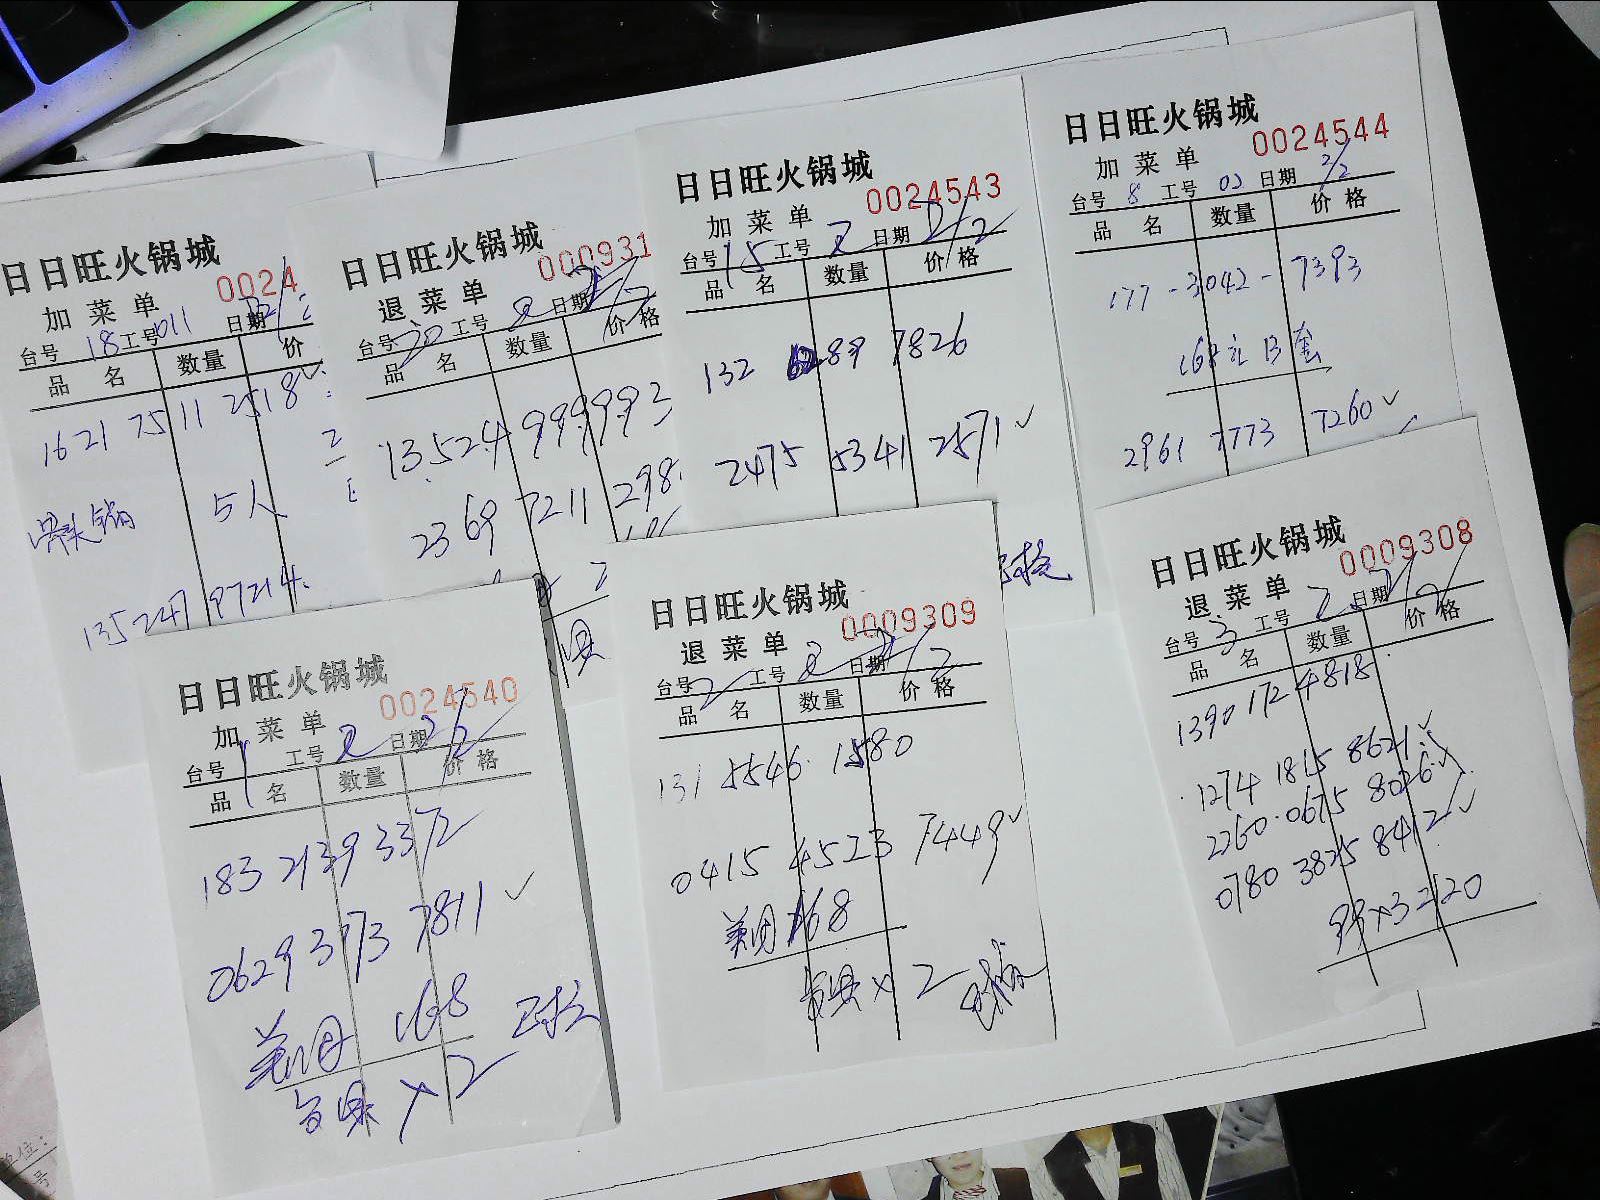 日日旺火锅城
0024
加菜单
台号 18 工号 011 日期
品名 数量 价
1621 7511 2518
5人
135247 97214
日日旺火锅城
000931
退菜单
台号 20 工号 2 日期 2/2
品名 数量 价格
13524 999993
2369 7211 298
日日旺火锅城
0024543
加菜单
台号 15 工号 2 日期 2/2
品名 数量 价格
132 6289 7826
2475 5341 2571 ✓
日日旺火锅城
0024544
加菜单
台号 8 工号 02 日期 2/2
品名 数量 价格
177-3042-7393
168元B套
2961 7773 7260 ✓
日日旺火锅城
0024540
加菜单
台号 1 工号 2 日期 2/2
品名 数量 价格
183 2139 3372
0629 3773 7811 ✓
美团 168
×2
日日旺火锅城
0009309
退菜单
台号 2 工号 2 日期 2/2
品名 数量 价格
131 5546 1580
0415 4523 7449 ✓
美团 168
×2
日日旺火锅城
0009308
退菜单
台号 3 工号 2 日期 2/2
品名 数量 价格
1390 172 4818
1274 1815 8621 ✓
2260 0675 8026 ✓
0780 3825 8412 ✓
99×3 2120